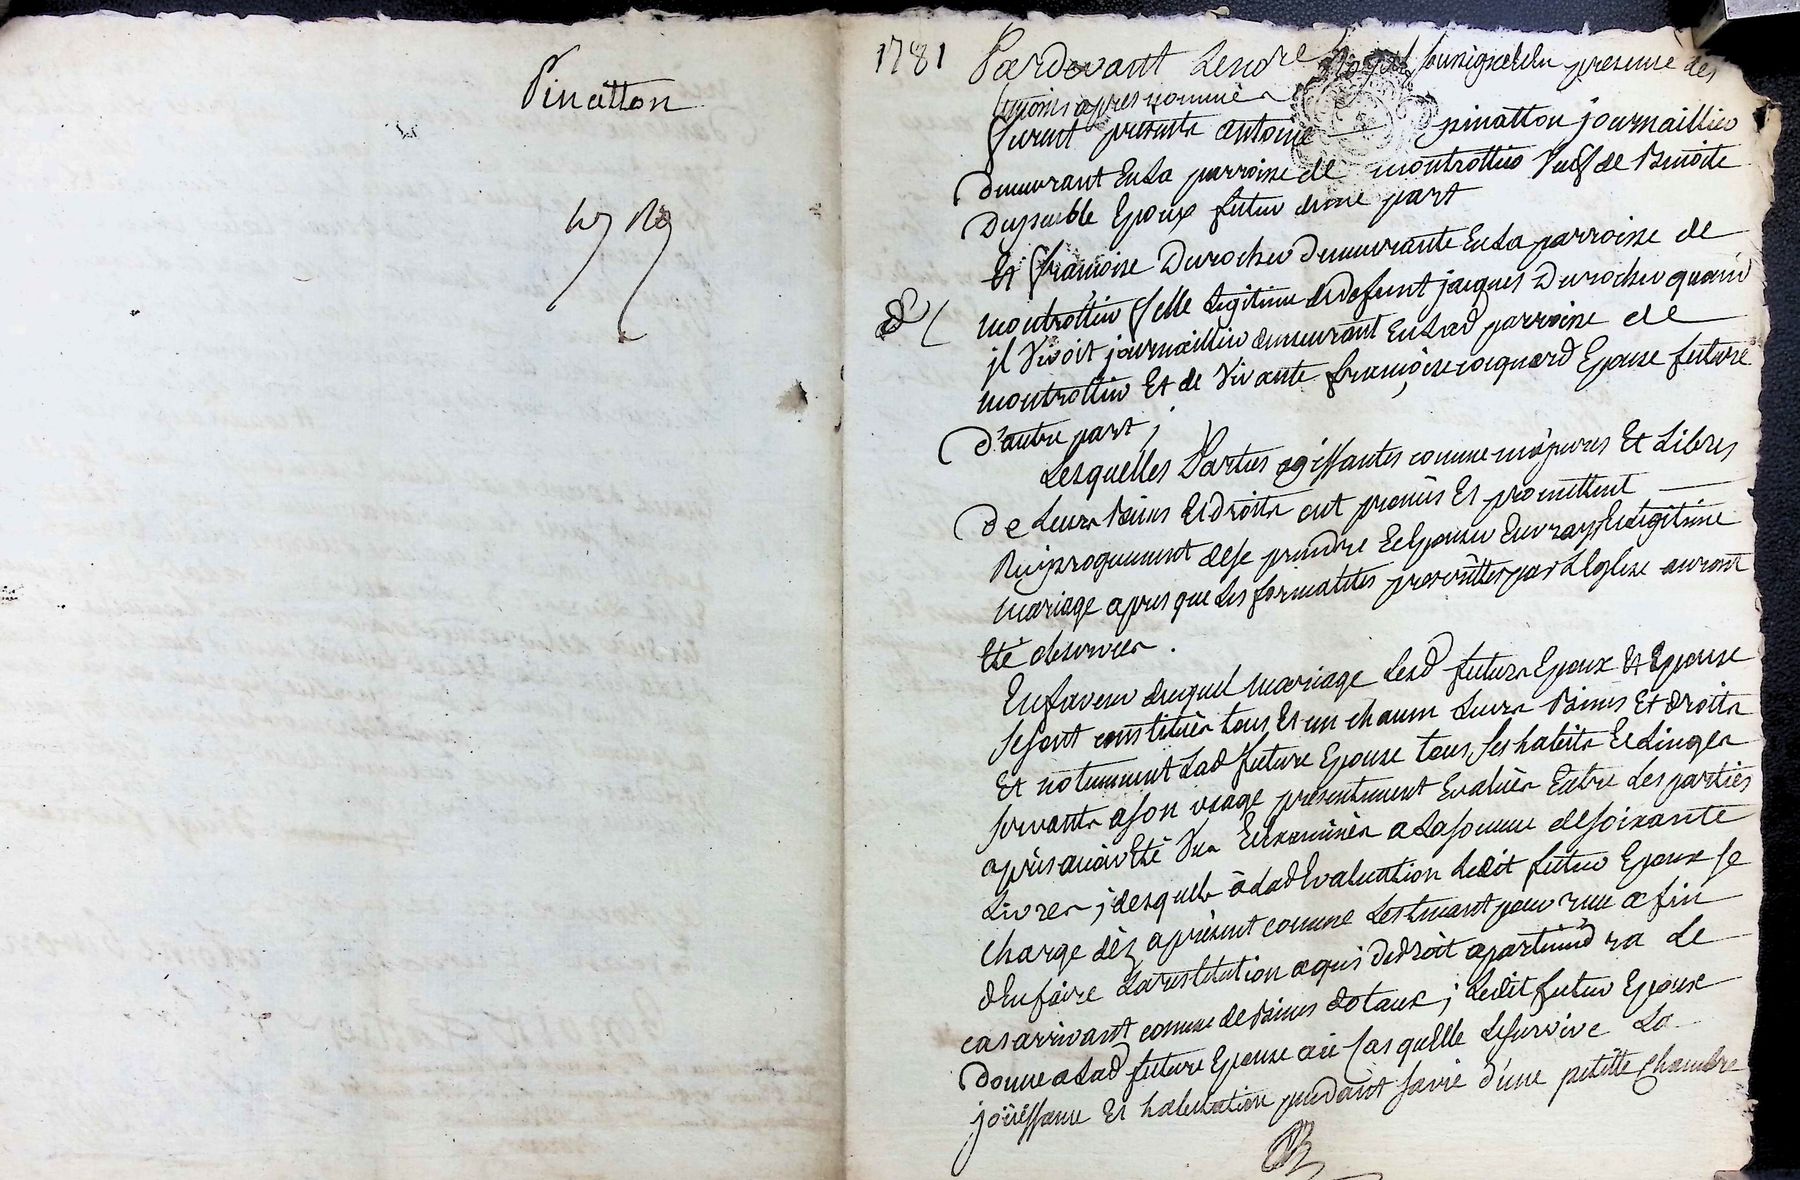 Pinatton
1781
Pardevant Lenore Royal soussigné et en presence des
temoins apres nommés
furent présents antoine pinatton journaillier
demeurant En La parroisse de montrottier Veuf de Benoite
Epoux futur d'une part
Et françoise Durocher demeurante En La parroisse de
montrottier fille Legitime de defunt jacques Durocher quand
jl Vivoit journaillier demeurant En Lad parroisse de
montrottier Et de Vivante françoise coquard Epouse future
d'autre part ;
Lesquelles Parties agissantes comme majeures Et Libres
de Leurs Biens Et droits ont promis Et promettent
Reciproquement de se prendre Et Epouser En vray Et Legitime
mariage apres que Les formalités prescrittes par L'Eglise auront
Eté observées .
En faveur duquel mariage Lesd futurs Epoux Et Epouse
se sont constitués tous Et un chacun Leurs Biens Et droits
Et notamment Lad future Epouse tous ses habits Et Linges
servants a son usage présentement Evalués Entre Les parties
après avoir Eté Vus Et Examinés a La somme de soixante
Livres ; desquels à Lad Evaluation Ledit futur Epoux se
charge dèz aprésent comme Les tenant pour afin
d'En faire La restitution a qui de droit apartiendra Le
cas arrivant comme de Biens dotaux ; Ledit futur Epoux
donne a Lad future Epouse au cas qu'Elle Le survive La
joüissance Et habitation pendant sa vie d'une petitte chambre